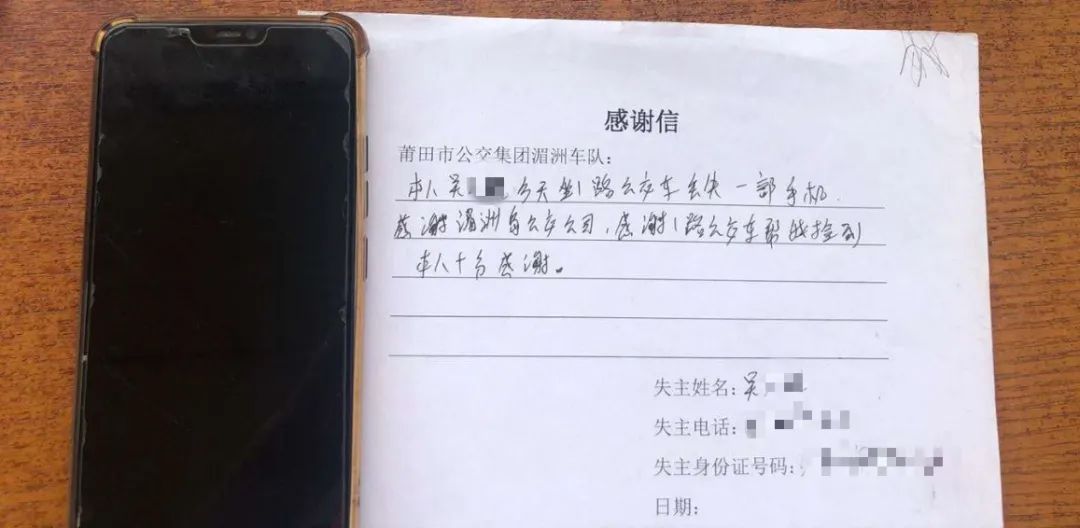 感谢信
莆田市公交集团湄洲车队：
本人吴 今天坐1路公交车丢失一部手机.
感谢湄洲岛公交公司，感谢1路公交车帮我捡到
本人十分感谢。
失主姓名：吴
失主电话：
失主身份证号码：
日期：